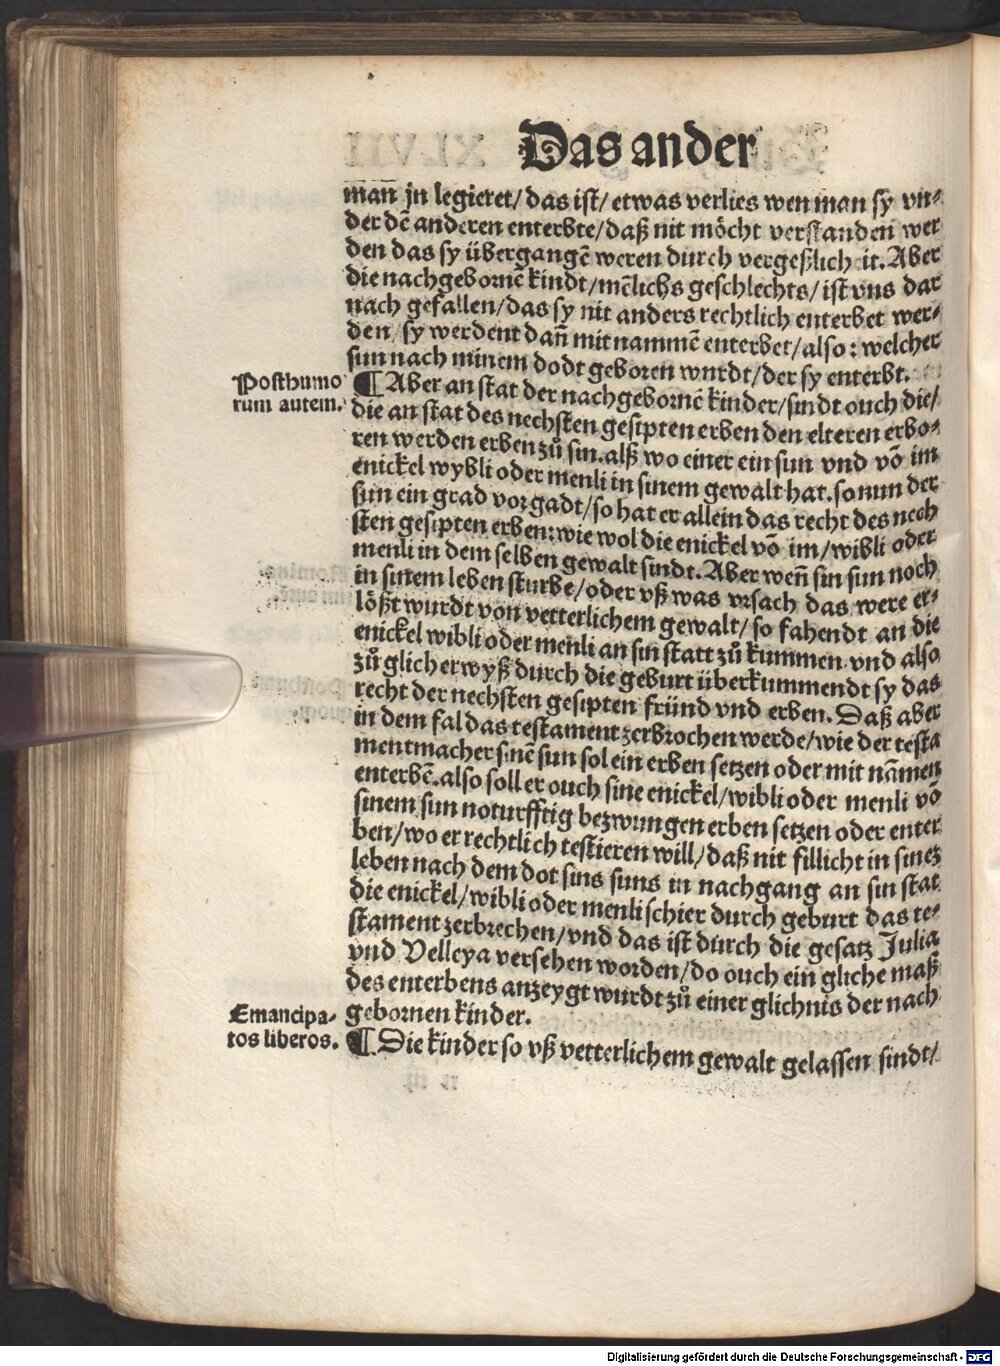 Das ander
mañ jn legieret/das ist/etwas verlies wen man sy vn⸗
der dē anderen enterbte/daß nit möcht verstanden wer
den das sy übergangē weren durch vergeßlich it. Aber
die nachgebornē kindt/mēlichs geschlechts/ist vns dar
nach gefallen/das sy nit anders rechtlich enterbet wer⸗
den/sy werdent dañ mit nammē enterbet/also: welcher
sun nach minem dodt geboren wurdt/der sy enterbt.
Posthumo
rum autem.
¶ Aber an stat der nachgebornē kinder/sindt ouch die/
die an stat des nechsten gesipten erben den elteren erbo⸗
ren werden erben zů sin. alß wo einer ein sun vnd vō im
enickel wybli oder menli in sinem gewalt hat. so nun der
sun ein grad vor gadt/so hat er allein das recht des nech
sten gesipten erben: wie wol die enickel vō im/wibli oder
menli in dem selben gewalt sindt. Aber weñ sin sun noch
in sinem leben sturbe/oder vß was vrsach das were er⸗
lößt wurdt von vetterlichem gewalt/so fahendt an die
enickel wibli oder menli an sin statt zů kummen. vnd also
zů glicher wyß durch die geburt überkummendt sy das
recht der nechsten gesipten fründ vnd erben. Daß aber
in dem fal das testament zerbrochen werde/wie der testa
mentmacher sinē sun sol ein erben setzen oder mit nāmen
enterbē. also soll er ouch sine enickel/wibli oder menli vō
sinem sun noturfftig bezwungen erben setzen oder enter
ben/wo er rechtlich testieren will/daß nit fillicht in sinez
leben nach dem dot sins suns in nachgang an sin stat
die enickel/wibli oder menli schier durch geburt das te⸗
stament zerbrechen/vnd das ist durch die gesatz Julia
vnd Velleya versehen worden/do ouch ein gliche maß
des enterbens anzeygt wurdt zů einer glichnis der nach
gebornen kinder.
Emancipa⸗
tos liberos.
¶ Die kinder so vß vetterlichem gewalt gelassen sindt/
Digitalisierung gefördert durch die Deutsche Forschungsgemeinschaft - DFG